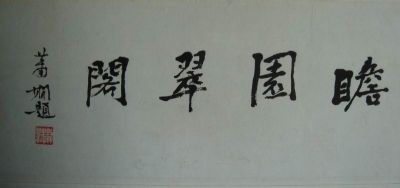 瞻園翠閣
蕭嫻題